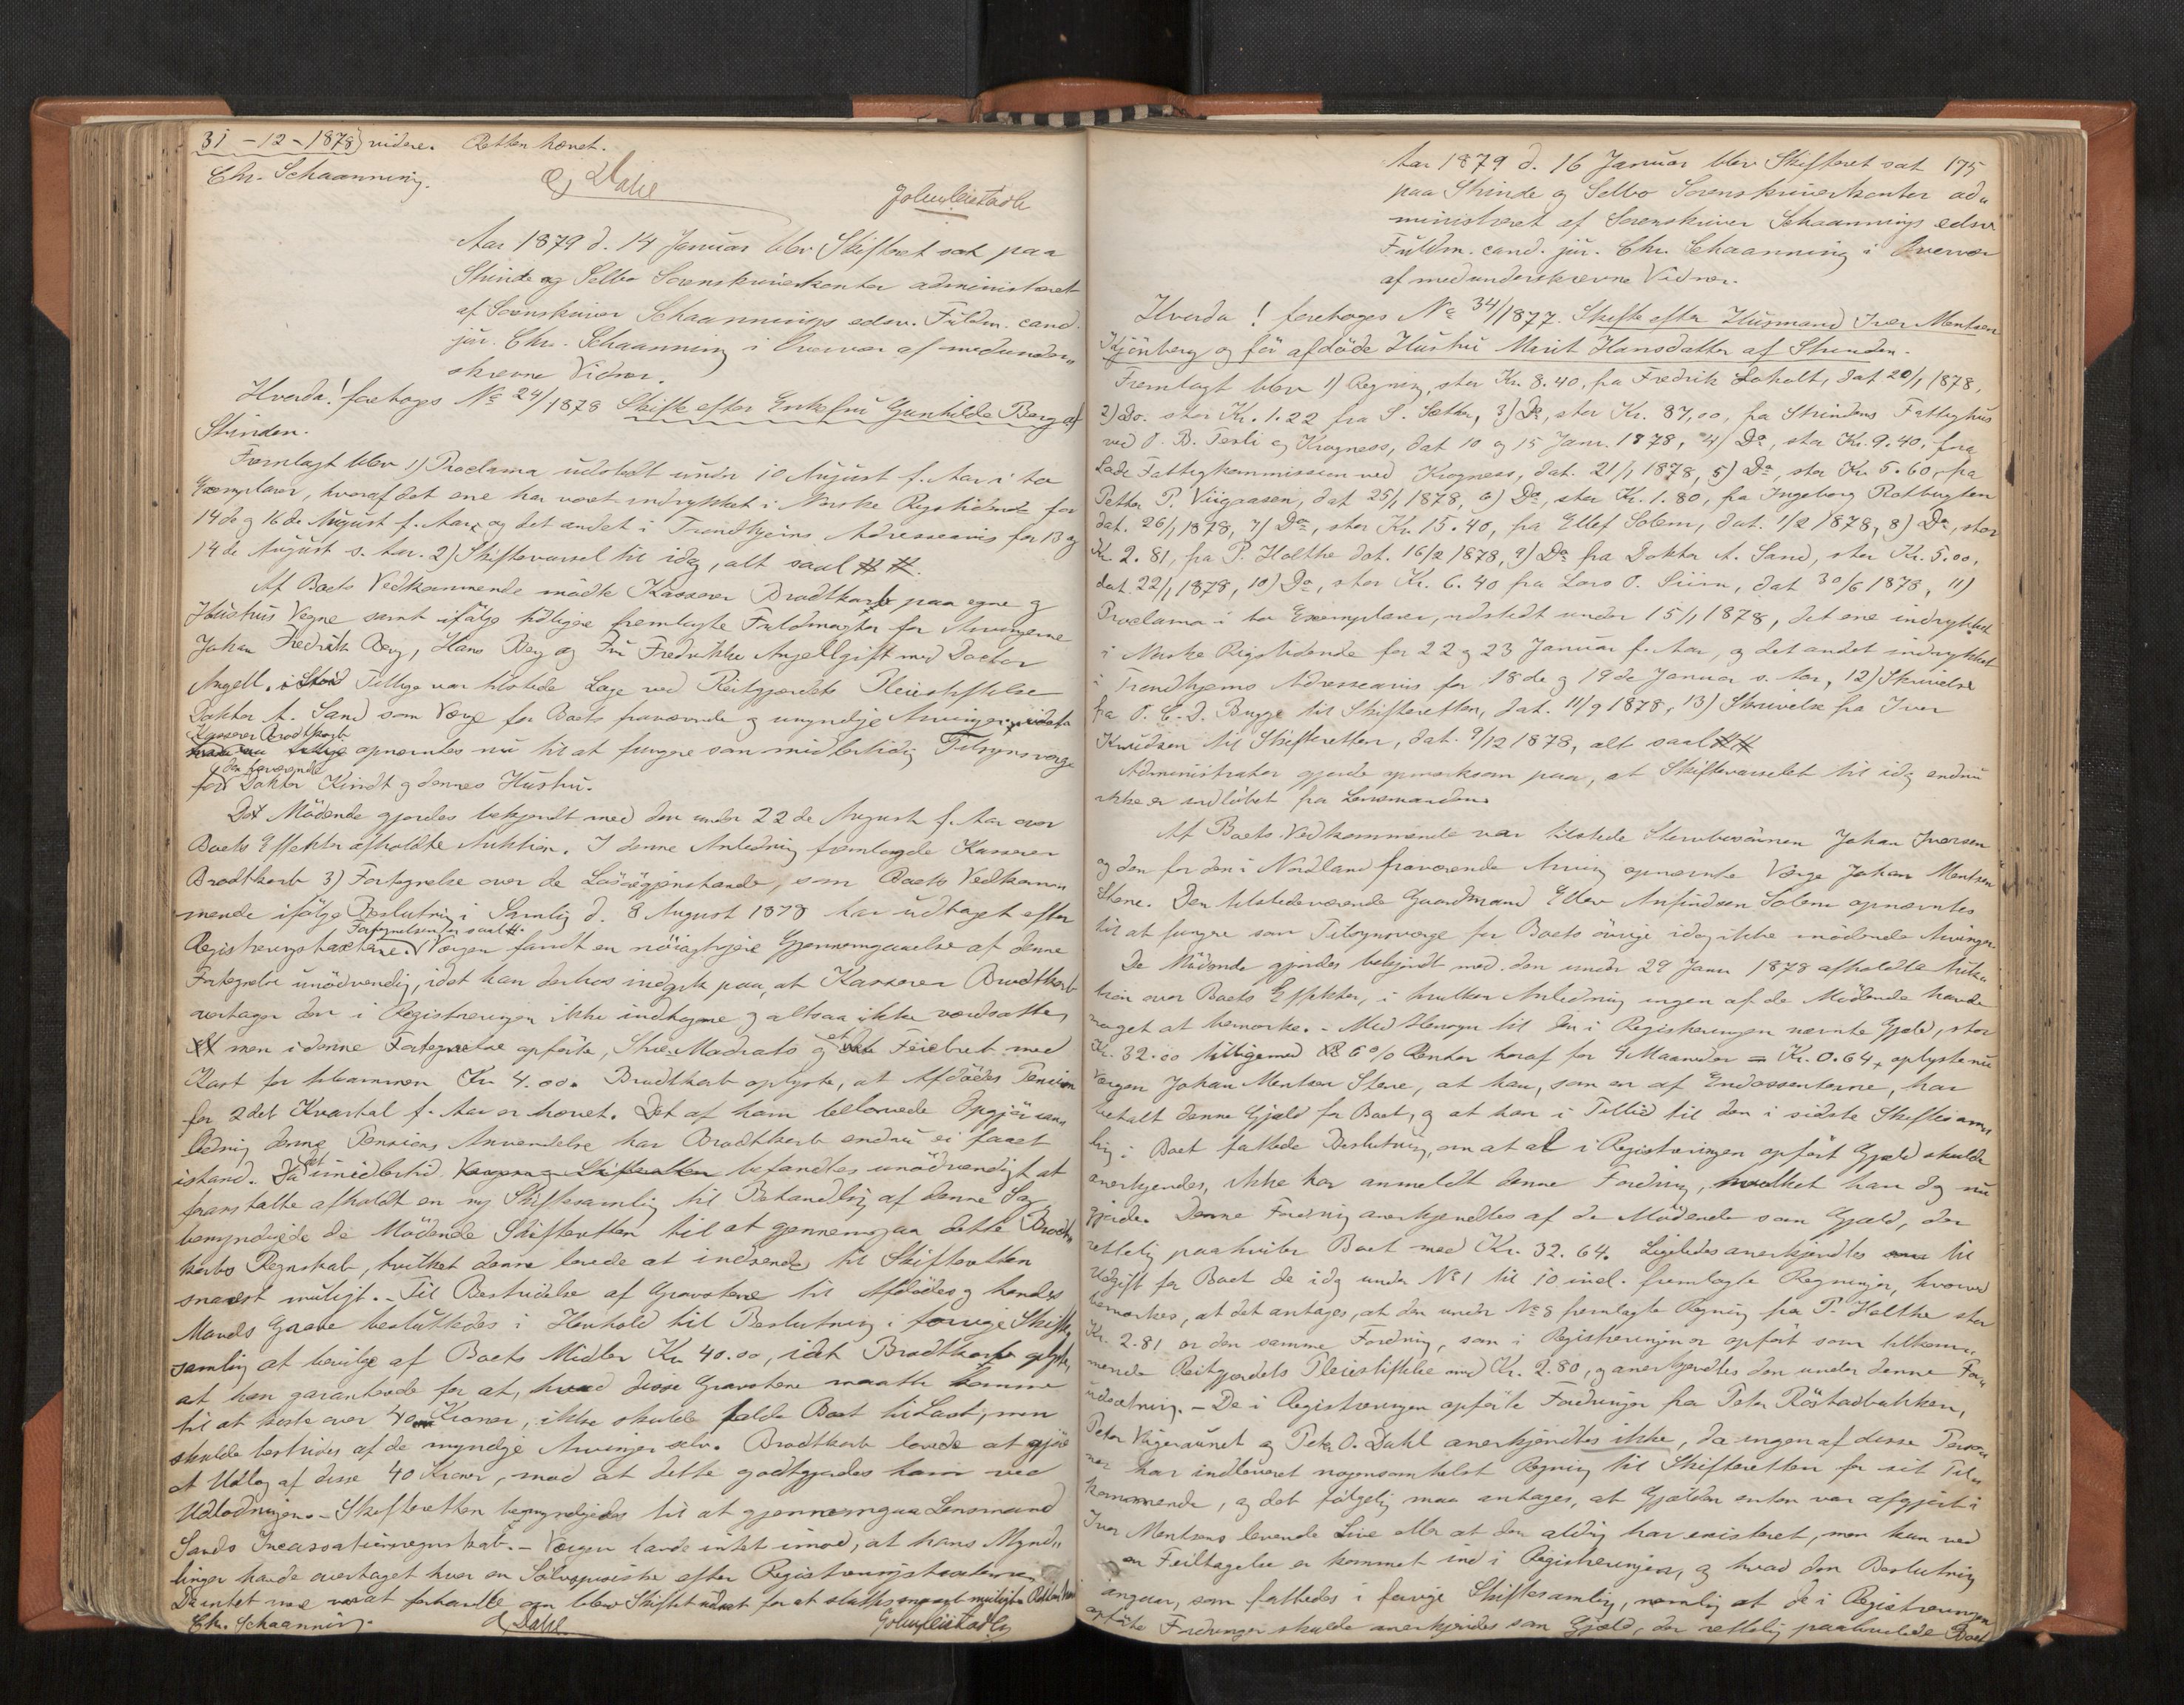 31-12-1878) videre. Retten hævet.
Chr. Schaanning. Dahl
Aar 1879 d. 14 Januar blev Skifteret sat paa
Strinde og Selbo Sorenskriverkontor administreret
af Sorenskriver Schaannings edsv. Fuldm. cand.
jur. Chr. Schaanning i Overvær af medunder„
skrevne Vidner.
Hvorda! foretoges No 24/1878 Skifte efter Enkefru Gunhilde Berg af
Strinden.
Fremlagt blev 1) Proclama udstedt under 10 August f. Aar i to
Exemplarer, hvoraf det ene har været indrykket i Norske Rigstidende for
14de og 16de August f. Aar, og det andet i Trondhjems Adresseavis for 13 og
14de August s. Aar. 2) Skiftevarsel til idag, alt saal. # #.
Af Boets Vedkommende mødte Kasserer Brodtkorb paa egne og
Hustrus Vegne samt ifølge tidligere fremlagte Fuldmagter for Arvingerne
Johan Fredrik Berg, Hans Berg og Fru Fredrikke Angell gift med Doctor
Angell. Tillige var tilstede Læge ved Reitgjærdets Pleiestiftelse
Doktor A. Sand som Værge for Boets fraværende og umyndige Arvinger,
Kasserer Brodtkorb
opnævntes nu til at fungere som midlertidig Tilsynsværge
den fraværende
for Doktor Kindt og dennes Hustru.
De Mødende gjordes bekjendt med den under 22de August f. Aar over
Boets Effekter afholdte Auktion. I denne Anledning fremlagde Kasserer
Brodtkorb 3) Fortegnelse over de Løsøregjenstande, som Boets Vedkom„
mende ifølge Beslutning i Samling d. 8 August 1878 har udtaget efter
Fortegnelsen er saal. #.
Registreringstaxterne. Værgen fandt en nøiagtigere Gjennemgaaelse af denne
Fortegnelse unødvendig, idet han derhos indgik paa, at Kasserer Brodtkorb
overtager den i Registreringen ikke indtagne og altsaa ikke værdsatte,
men i denne Fortegnelse opførte, Madrats og et Feiebret med
Kost for tilsammen Kr 4.00. Brodtkorb oplyste, at Afdødes Pension
for 2det Kvartal f. Aar er hævet. Det af ham belovede Opgjør
denne Pensions Anvendelse har Brodtkorb endnu ei faaet
istand. Da det imidlertid befandtes unødvendigt at
foranstalte afholdt en ny Skiftesamling til Behandling af denne Sag
bemyndigede de Mødende Skifteretten til at gjennemgaa dette Brodt„
korbs Regnskab, hvilket denne lovede at indsende til Skifteretten
snarest muligt. – Til Bestridelse af Gravstene til Afdødes og hendes
Mands Grave besluttedes i Henhold til Beslutning i forrige Skifte„
samling at bevilge af Boets Midler Kr 40.00, idet Brodtkorb oplyste,
at han garanterede for at, hvad disse Gravstene maatte komme
til at koste over 40 Kroner, ikke skulde falde Boet til Last, men
skulde bestrides af de myndige Arvinger selv. Brodtkorb lovede at gjøre
et Udlæg af disse 40 Kroner, mod at dette godtgjordes ham ved
Udlodningen. – Skifteretten bemyndigedes til at gjennemgaa Lensmand
Sands Incassationsregnskab. – Værgen havde intet imod, at hans Mynd„
linger havde overtaget hver en Sølvspiseske efter Registreringstaxterne.
Da intet mere var at forhandle om blev Skiftet udsat for at sluttes snarest muligt. Retten hævet
Chr. Schaanning. Dahl
Aar 1879 d. 16 Januar blev Skifteret sat 175
paa Strinde og Selbo Sorenskriverkontor ad„
ministreret af Sorenskriver Schaannings edsv
Fuldm. cand. jur. Chr. Schaanning i Overvær
af medunderskrevne Vidner.
Hvorda! foretoges No 34/1877. Skifte efter Husmand Iver Mentsen
og før afdøde Hustru Marit Hansdatter af Strinden.
Fremlagt blev 1) Regning, stor Kr. 8.40, fra Fredrik Loholt, dat 20/1 1878,
2) Do. stor Kr. 1.22 fra S. Sæther, 3) Do, stor Kr. 87,00, fra Strindens Fattighus
ved O. B. Tesli og Krogness, dat 10 og 15 Janr. 1878, 4) Do, stor Kr. 9.40, fra
Lade Fattigkommission ved Krogness, dat. 21/1 1878, 5) Do, stor Kr 5.60, fra
Petter P. Viigaasen, dat 25/1 1878, 6) Do, stor Kr. 1.80, fra Ingeborg Rotbugten
dat. 26/1 1878, 7) Do, stor Kr. 15.40, fra Ellef Solem, dat. 1/2 1878, 8) Do, stor
Kr 2.81, fra P. Holthe dat. 16/2 1878, 9) Do fra Doktor A. Sand, stor Kr. 5.00,
dat. 22/1 1878, 10) Do, stor Kr. 6.40 fra Lars O. Siem, dat 30/6 1878, 11)
Proclama i to Exemplarer, udstedt under 15/1 1878, det ene indrykket
i Norske Rigstidende for 22 og 23 Januar f. Aar, og det andet indrykket
i Trondhjems Adresseavis for 18de og 19de Januar s. Aar, 12) Skrivelse
fra O. C. D. Bugge til Skifteretten, dat. 11/9 1878, 13) Skrivelse fra Iver
Knudsen til Skifteretten, dat. 9/12 1878, alt saal. # #
Administrator gjorde opmærksom paa, at Skiftevarselet til idag endnu
ikke er indløbet fra Lensmanden.
Af Boets Vedkommende var tilstede Stervbosønnen Johan Iversen
og den for den i Nordland fraværende Arving opnævnte Værge Johan Mentsen
Stene. Den tilstedeværende Gaardmand Ellev Anfindsen Solem opnævntes
til at fungere som Tilsynsværge for Boets øvrige idag ikke mødende Arvinger.
De Mødende gjordes bekjendt med den under 29 Janr 1878 afholdte Auk„
tion over Boets Effekter, i hvilken Anledning ingen af de Mødende havde
noget at bemærke. – Med Hensyn til den i Registreringen nævnte Gjæld, stor
Kr. 32.00 tilligemed 6 % Renter heraf for 4 Maaneder = Kr. 0.64, oplyste nu
Værgen Johan Mentsen Stene, at han, som en af Endossenterne, har
betalt denne Gjæld for Boet, og at han i Tillid til den i sidste Skiftesam„
ling i Boet fattede Beslutning, om at al i Registreringen opført Gjæld skulde
anerkjendes, ikke har anmeldt denne Fordring, hvilket han dog nu
gjorde. Denne Fordring anerkjendtes af de Mødende som Gjæld, der
rettelig paahviler Boet med Kr. 32.64. Ligeledes anerkjendtes til
Udgift for Boet de idag under No 1 til 10 incl. fremlagte Regninger, hvorved
bemærkes, at det antages, at den under No 8 fremlagte Regning fra P. Holthe stor
Kr. 2.81 er den samme Fordring, som i Registreringen er opført som tilkom„
mende Reitgjærdets Pleiestiftelse med Kr. 2.80, og anerkjendtes den under denne For„
udsætning. – De i Registreringen opførte Fordringer fra Peter Røstadbakken,
Peter Vigeraunet og Peter O. Dahl anerkjendtes ikke, da ingen af disse Perso„
ner har indleveret nogensomhelst Regning til Skifteretten for sit Til„
kommende, og det følgelig maa antages, at Gjælden enten var afgjort i
Iver Mentsens levende Live eller at den aldrig har existeret, men kun ved
en Feiltagelse er kommet ind i Registreringen, og hvad den Beslutning
angaar, som fattedes i forrige Skiftesamling, nemlig at de i Registreringen
opførte Fordringer skulde anerkjendes som Gjæld, der rettelig paahvilede Boet